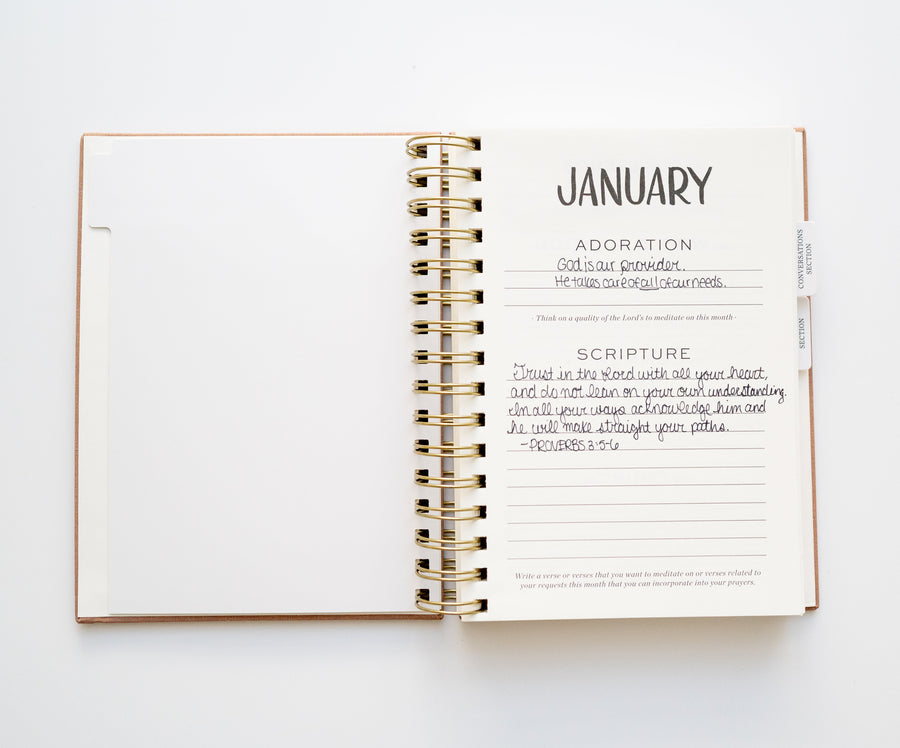 JANUARY
ADORATION
God is our provider.
He takes care of all of our needs.
- Think on a quality of the Lord's to meditate on this month -
SCRIPTURE
Trust in the Lord with all your heart,
and do not lean on your own understanding.
In all your ways acknowledge him and
he will make straight your paths.
-PROVERBS 3:5-6
Write a verse or verses that you want to meditate on or verses related to
your requests this month that you can incorporate into your prayers.
CONVERSATIONS
SECTION
SECTION